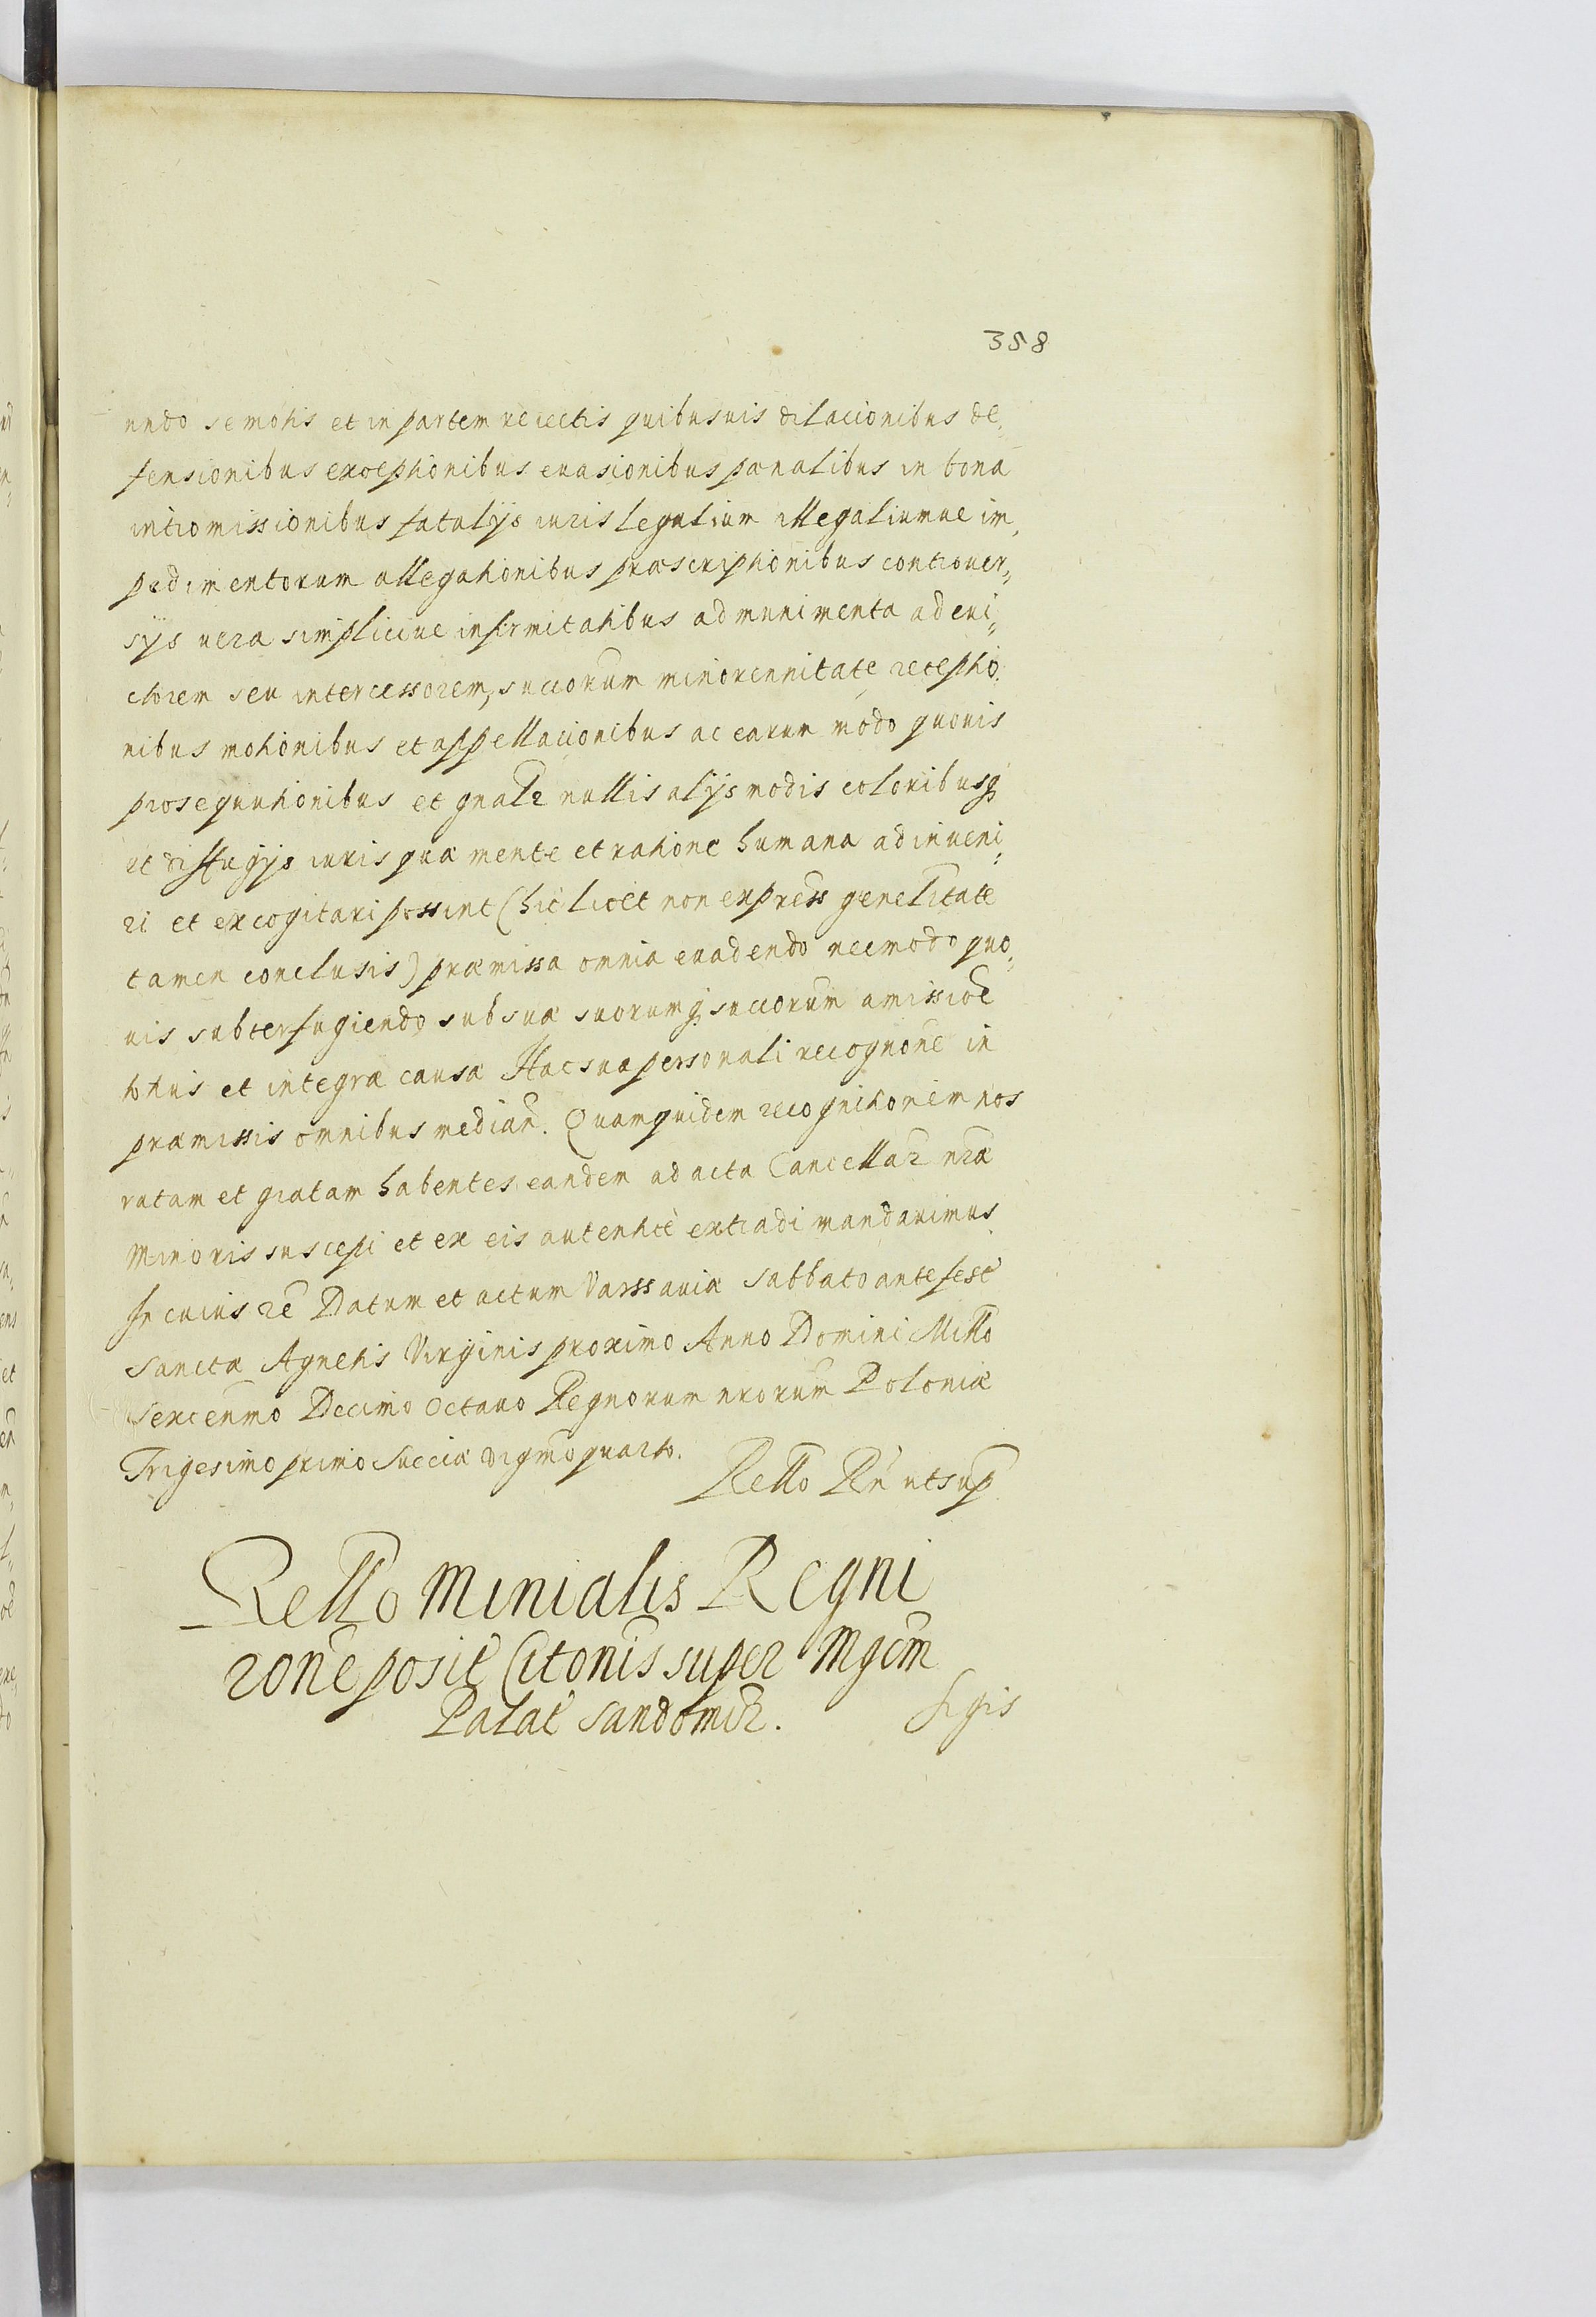 358
undo semotis et in partem reiectis quibusuis dilacionibus de,
fensionibus exceptionibus euasionibus pœnalibus in bona
intromissionibus fatalÿs iuris legalium illegaliumue im,
pedimentorum allegationibus præscriptionibus controuer,,
sÿs vera simpliciue infirmitatibus ad munimenta ad eui,,
ctorem seu intercessorem, succorum minorennitate receptio,
nibus motionibus et appellacionibus ac earum modo quouis
prosequutionibus et gnalr nullis alÿs modis coloribusq
et diffugÿs iuris quæ mente et ratione humana adinueni,,
ri et excogitari possint (hic licet non express genelitate
tamen conclusis) præmissa omnia euadendo nec modo quo,,
uis subterfugiendo sub suæ suorumq succorum amissioe
totius et integræ causæ Hac sua personali recognone in
præmissis omnibus median. Quam quidem recognitionem nos
ratam et gratam habentes eandem ad acta Cancellar nræ
Minoris suscepi et ex eis autentice extradi mandauimus
In cuius re Datum et actum Varssauiæ Sabbato ante fest
Sanctæ Agnetis Virginis proximo Anno Domini Millo
Sexcenmo Decimo Octauo Regnorum nrorum Poloniæ
Trigesimo primo Sueciæ vigmo quarto.
Rello Rn utsup
Rello Minialis Regni
rone posit Citonis super Mgcm
Palat Sandomir.
Sigis